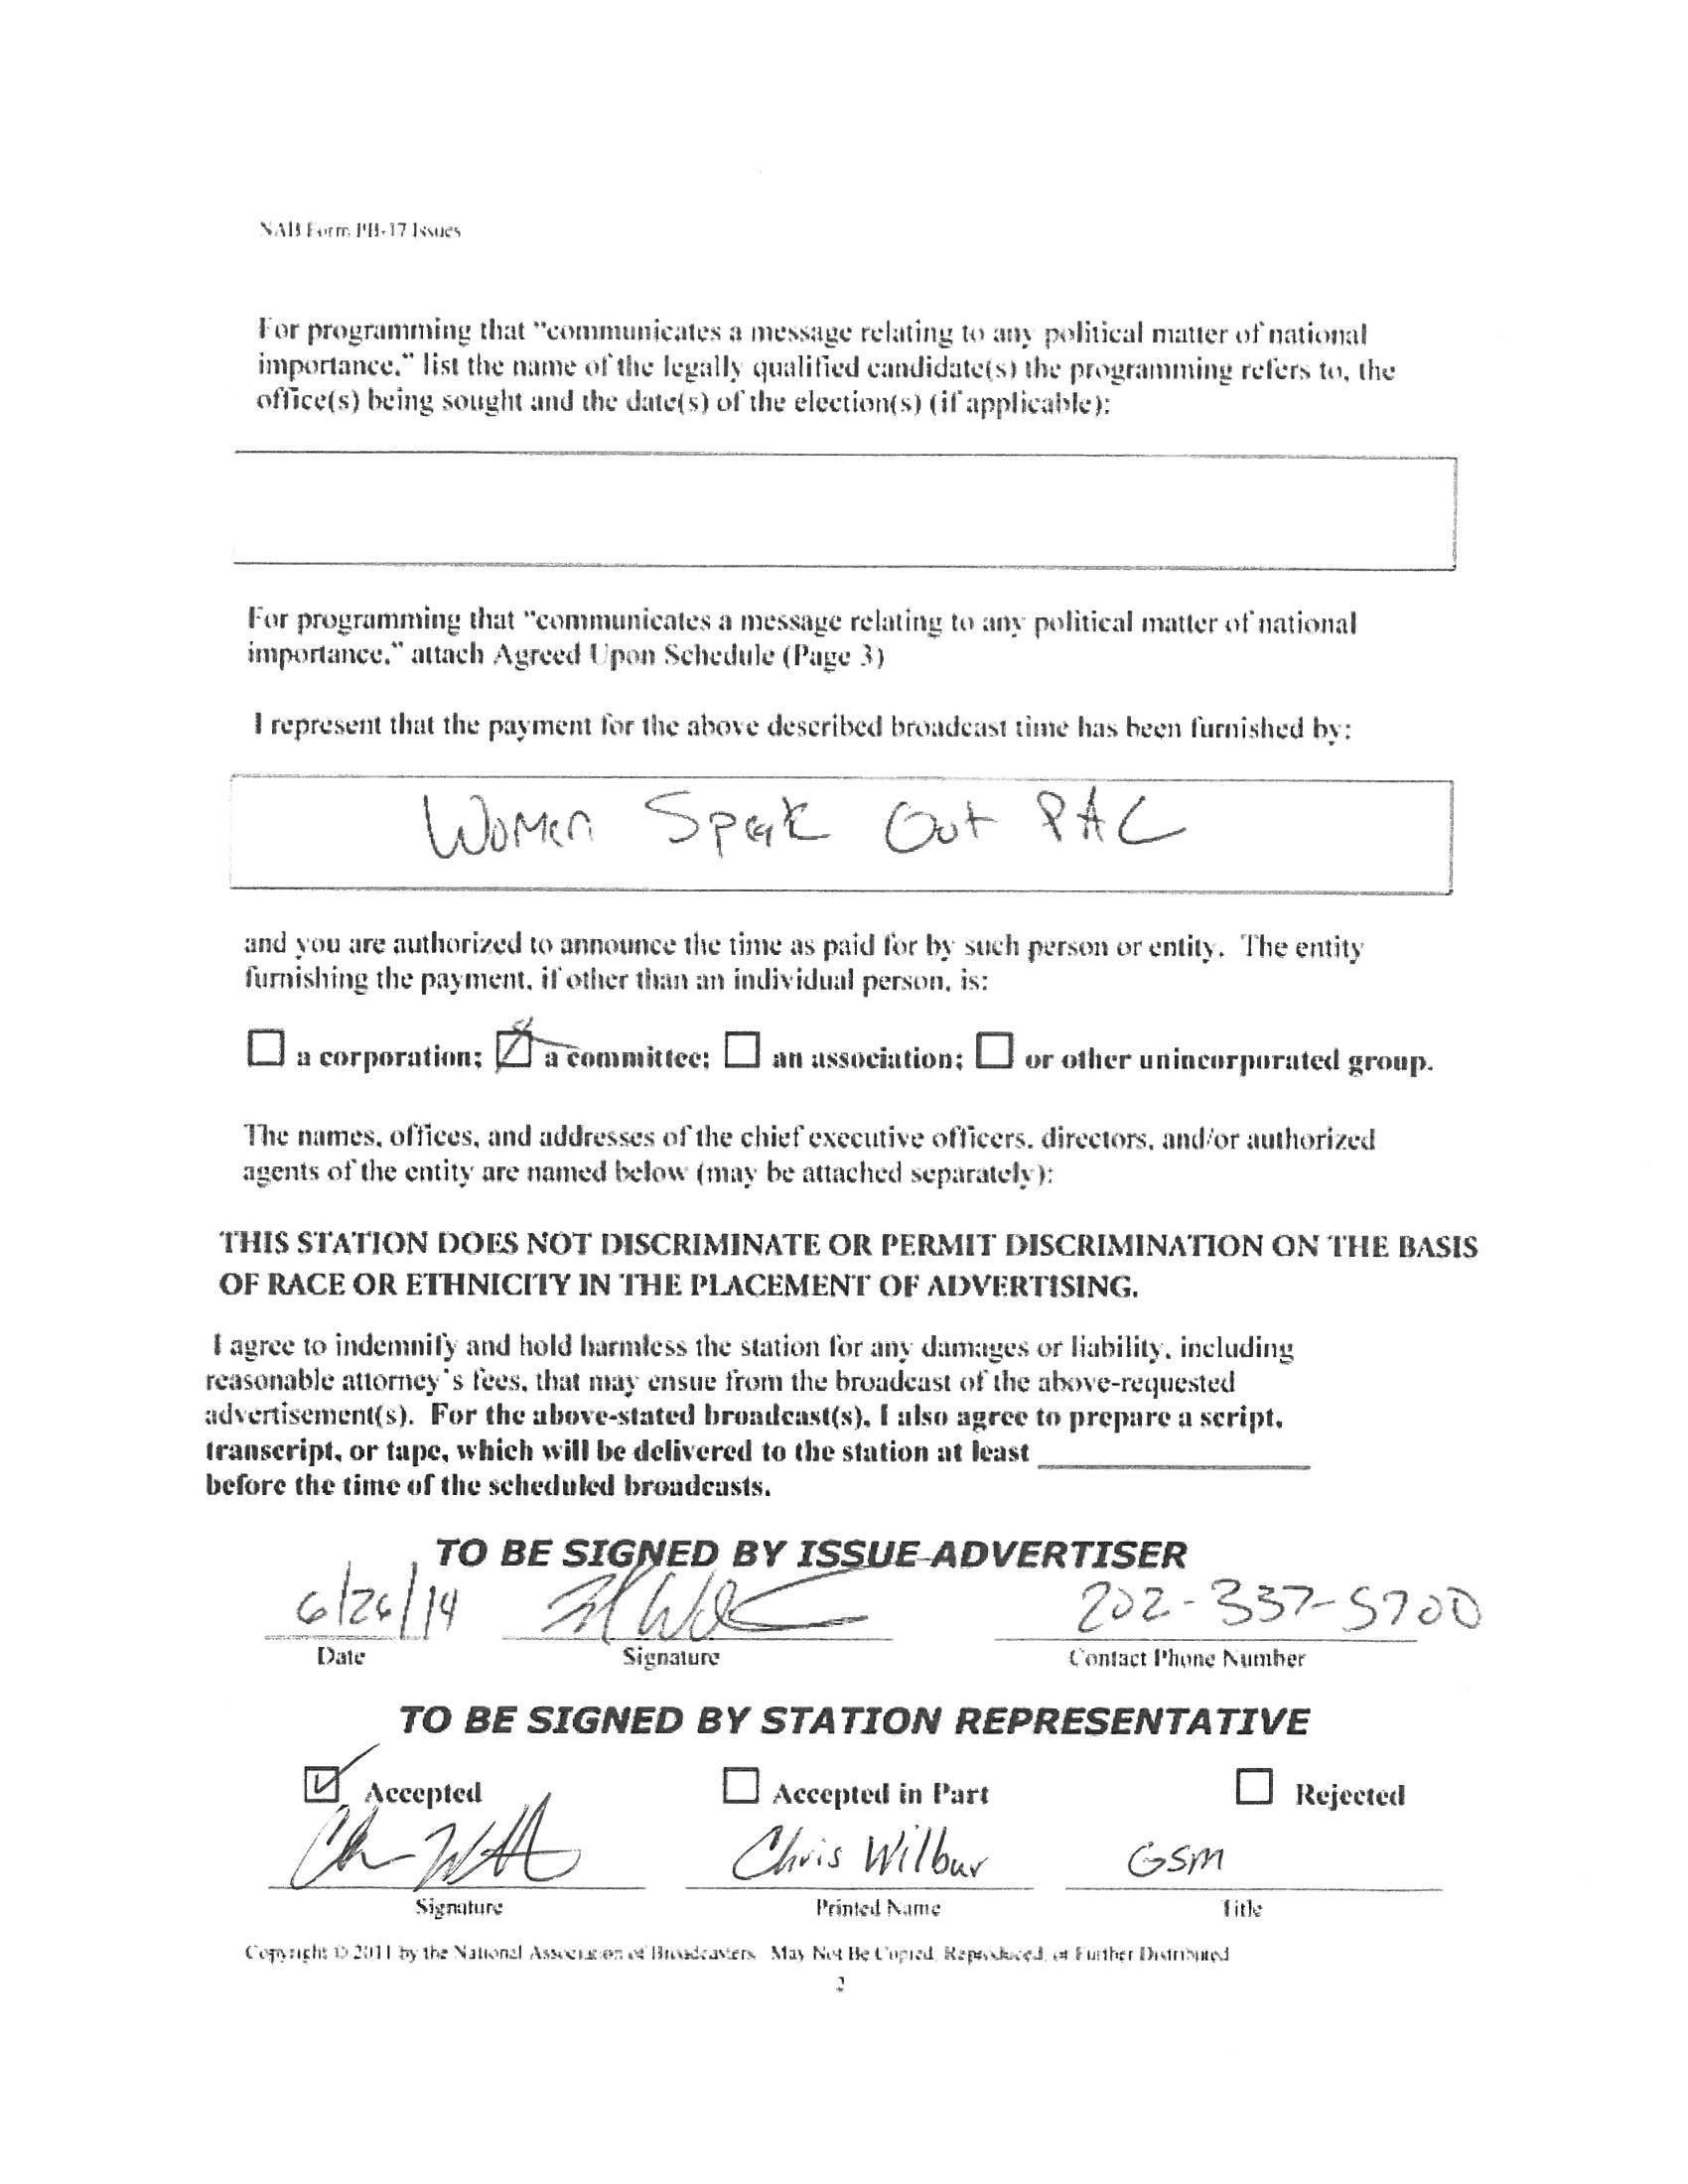 NAB Form PB-17 Issues
For programming that "communicates a message relating to any political matter of national
importance," list the name of the legally qualified candidate(s) the programming refers to, the
office(s) being sought and the date(s) of the election(s) (if applicable):
For programming that "communicates a message relating to any political matter of national
importance," attach Agreed Upon Schedule (Page 3)
I represent that the payment for the above described broadcast time has been furnished by:
Women Speak Out PAC
and you are authorized to announce the time as paid for by such person or entity. The entity
furnishing the payment, if other than an individual person, is:
a corporation; a committee; an association; or other unincorporated group.
The names, offices, and addresses of the chief executive officers, directors, and/or authorized
agents of the entity are named below (may be attached separately):
THIS STATION DOES NOT DISCRIMINATE OR PERMIT DISCRIMINATION ON THE BASIS
OF RACE OR ETHNICITY IN THE PLACEMENT OF ADVERTISING.
I agree to indemnify and hold harmless the station for any damages or liability, including
reasonable attorney's fees, that may ensue from the broadcast of the above-requested
advertisement(s). For the above-stated broadcast(s), I also agree to prepare a script,
transcript, or tape, which will be delivered to the station at least
before the time of the scheduled broadcasts.
TO BE SIGNED BY ISSUE ADVERTISER
6/26/14 202-337-5700
Date Signature Contact Phone Number
TO BE SIGNED BY STATION REPRESENTATIVE
Accepted Accepted in Part Rejected
Chris Wilbur GSM
Signature Printed Name Title
Copyright © 2011 by the National Association of Broadcasters May Not Be Copied, Reproduced, or Further Distributed
2